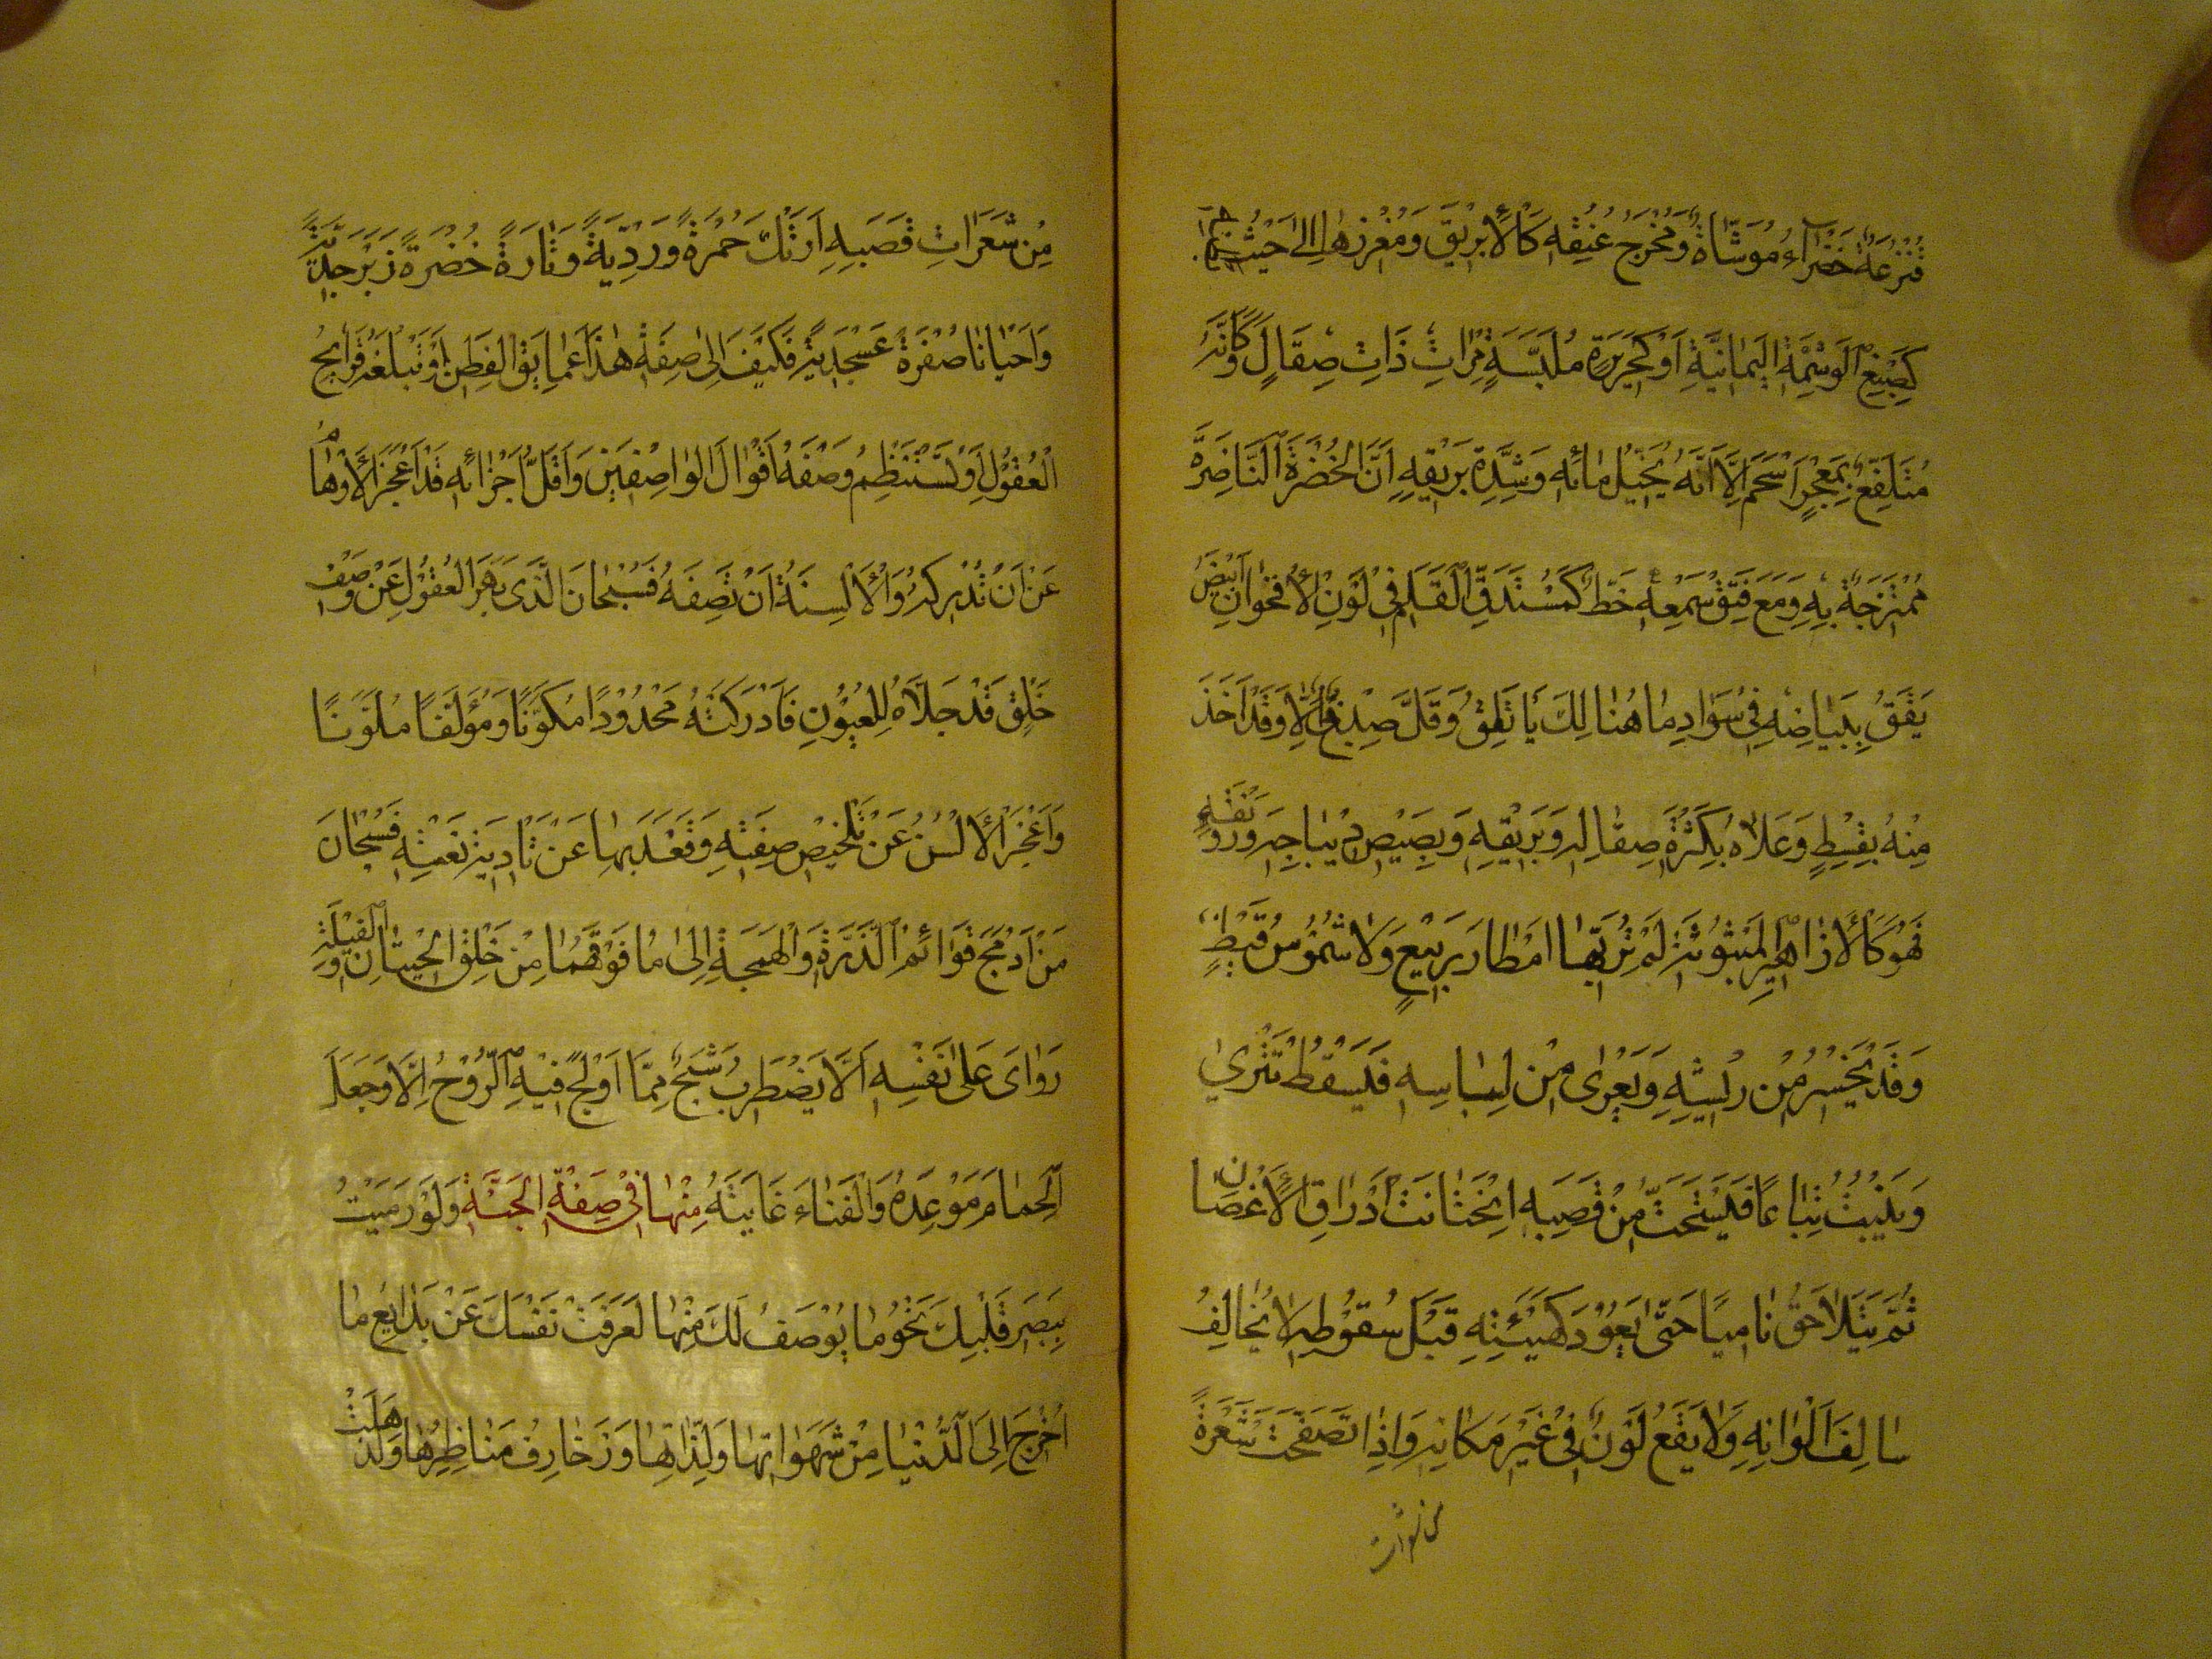 قُنْزُعَةٌ خَضْرَآءُ مُوَشَّاةٌ وَمَخْرَجُ عُنُقِهِ كَالْأَبْرِيْقِ وَمَغْرِزُهَا اِلىٰ حَيْثُ بَطْنُهُ
كَصِبْغِ الْوَسْمَةِ الْيَمَانِيَّةِ اَوْ كَحَرِيْرَةٍ مُلْبَسَةٍ مِرْاٰتٍ ذَاتِ صِقَالٍ وَكَاَنَّهُ
مُتَلَفِّعٌ بِمَعْجِرٍ اَسْحَمَ اِلَّا اَنَّهُ يُخَيَّلُ مَائِهِ وَشِدَّةِ بَرِيْقِهِ اَنَّ الْخُضْرَةَ النَّاضِرَةَ
مُمْتَزِجَةٌ بِهِ وَمَعَ فَتْقِ سَمْعِهِ خَطٌّ كَمُسْتَدَقِّ الْقَلَمِ فِيْ لَوْنِ الْأُقْحُوَانِ اَبْيَضُ
يَقَقٌ بِبَيَاضِهِ فِيْ سَوَادِ مَا هُنَالِكَ يَأْتَلِقُ وَقَلَّ صِبْغٌ اِلَّا وَقَدْ اَخَذَ
مِنْهُ بِقِسْطٍ وَعَلَاهُ بِكَثْرَةِ صِقَالِهِ وَبَرِيْقِهِ وَبَصِيْصِ دِيْبَاجِهِ وَرَوْنَقِهِ
فَهُوَ كَالْأَزَاهِيْرِ الْمَبْثُوْثَةِ لَمْ تُرَبِّهَا اَمْطَارُ رَبِيْعٍ وَلَا شُمُوْسُ قَيْظٍ
وَقَدْ يَنْحَسِرُ مِنْ رِيْشِهِ وَيَعْرىٰ مِنْ لِبَاسِهِ فَيَسْقُطُ تَتْرىٰ
وَيَنْبُتُ تِبَاعًا فَيَنْحَتُّ مِنْ قَصَبِهِ اِنْحِتَاتَ اَوْرَاقِ الْأَغْصَانِ
ثُمَّ يَتَلَاحَقُ نَامِيًا حَتّىٰ يَعُوْدَ كَهَيْئَتِهِ قَبْلَ سُقُوْطِهِ لَا يُخَالِفُ
سَالِفَ اَلْوَانِهِ وَلَا يَقَعُ لَوْنٌ فِيْ غَيْرِ مَكَانِهِ وَاِذَا تَصَفَّحْتَ شَعْرَةً
من شعرات
مِنْ شَعَرَاتِ قَصَبِهِ اَرَتْكَ حُمْرَةً وَرْدِيَّةً وَتَارَةً خُضْرَةً زَبَرْجَدِيَّةً
وَاَحْيَانًا صُفْرَةً عَسْجَدِيَّةً فَكَيْفَ اِلىٰ صِفَةِ هٰذَا عَمَايِقُ الْفِطَنِ اَوْ تَبْلُغُهُ قَرَايِحُ
الْعُقُوْلِ اَوْ تَسْتَنْظِمُ وَصْفَهُ اَقْوَالُ الْوَاصِفِيْنَ وَاَقَلُّ اَجْزَائِهِ قَدْ اَعْجَزَ الْأَوْهَامَ
عَنْ اَنْ تُدْرِكَهُ وَالْأَلْسِنَةَ اَنْ تَصِفَهُ فَسُبْحَانَ الَّذِيْ بَهَرَ الْعُقُوْلَ عَنْ وَصْفِ
خَلْقٍ قَدْ جَلَّاهُ لِلْعُيُوْنِ فَاَدْرَكَتْهُ مَحْدُوْدًا مُكَوَّنًا وَمُؤَلَّفًا مُلَوَّنًا
وَاَعْجَزَ الْأَلْسُنَ عَنْ تَلْخِيْصِ صِفَتِهِ وَقَعَدَ بِهَا عَنْ تَأْدِيَةِ نَعْتِهِ فَسُبْحَانَ
مَنْ اَدْمَجَ قَوَائِمَ الذَّرَّةِ وَالْهَمَجَةِ اِلىٰ مَا فَوْقَهُمَا مِنْ خَلْقِ الْحِيْتَانِ وَالْفِيَلَةِ
وَوَاىٰ عَلىٰ نَفْسِهِ اَلَّا يَضْطَرِبَ شَبَحٌ مِمَّا اَوْلَجَ فِيْهِ الرُّوْحَ اِلَّا وَجَعَلَ
الْحِمَامَ مَوْعِدَهُ وَالْفَنَاءَ غَايَتَهُ مِنْهَا فِيْ صِفَةِ الْجَنَّةِ وَلَوْ رَمَيْتَ
بِبَصَرِ قَلْبِكَ نَحْوَ مَا يُوْصَفُ لَكَ مِنْهَا لَعَزَفَتْ نَفْسُكَ عَنْ بَدَايِعِ مَا
اُخْرِجَ اِلَى الدُّنْيَا مِنْ شَهَوَاتِهَا وَلَذَّاتِهَا وَزَخَارِفِ مَنَاظِرِهَا وَلَذَهِلَتْ